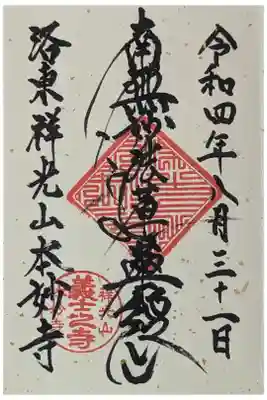 令和四年八月三十一日
南無妙法蓮華経
洛東祥光山本妙寺
義士之寺